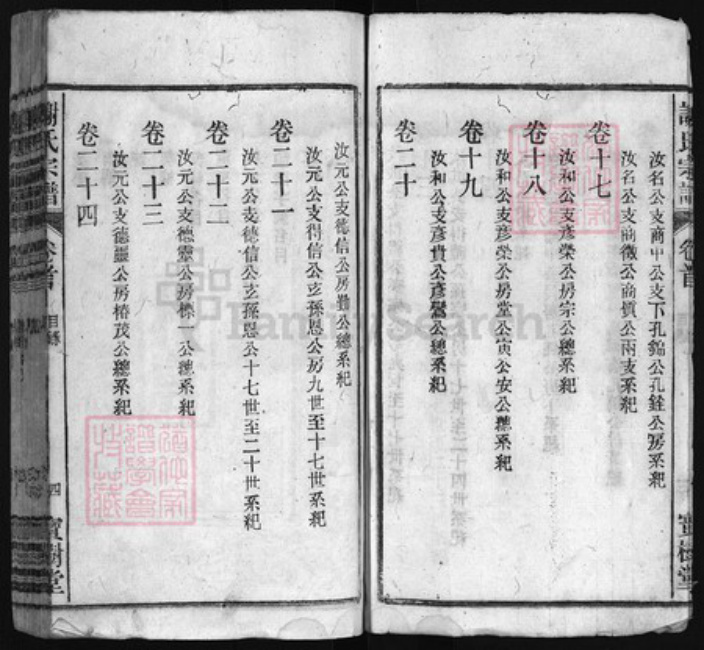 汝名公支商中公支下孔錦公孔銓公房系紀
汝名公支商徵公商質公兩支系紀
卷十七
汝和公支彥榮公房宗公總系紀
卷十八
汝和公支彥榮公房堂公寅公安公總系紀
卷十九
汝和公支彥貴公彥鸞公總系紀
卷二十
謝氏宗譜 卷首
寶樹堂
汝元公支德信公房勤公總系紀
汝元公支得信公支孫恩公房九世至十七世系紀
卷二十一
汝元公支德信公支孫恩公十七世至二十世系紀
卷二十二
汝元公支德靈公房一公總系紀
卷二十三
汝元公支德靈公房椿茂公總系紀
卷二十四
謝氏宗譜 卷首 目錄 四 寶樹堂
FamilySearch